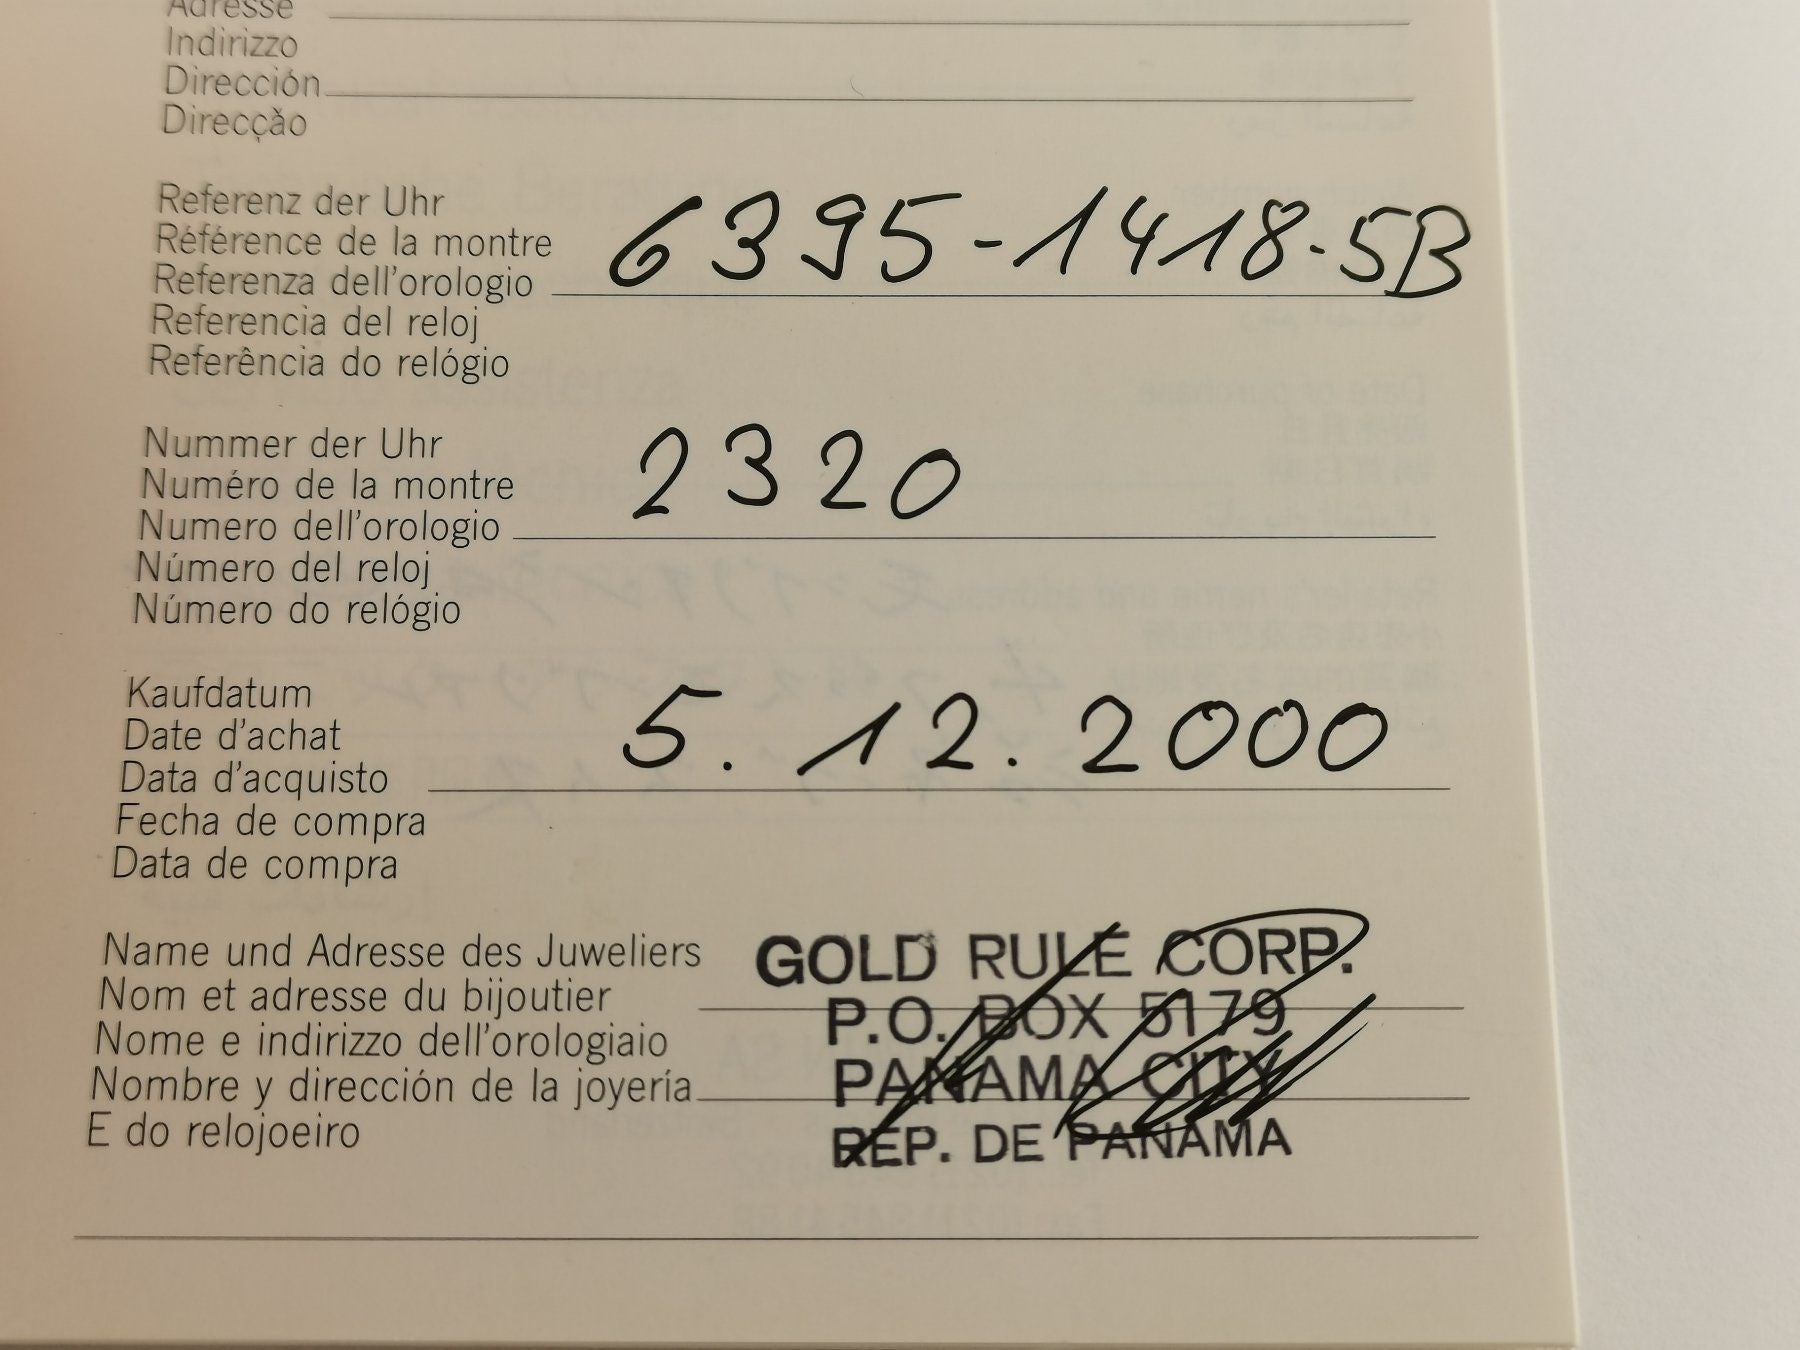 Adresse
Indirizzo
Dirección
Direcção
Referenz der Uhr
Référence de la montre
Referenza dell'orologio 6395-1418-5B
Referencia del reloj
Referência do relógio
Nummer der Uhr
Numéro de la montre
Numero dell'orologio 2320
Número del reloj
Número do relógio
Kaufdatum
Date d'achat
Data d'acquisto 5.12.2000
Fecha de compra
Data de compra
Name und Adresse des Juweliers GOLD RULE CORP.
Nom et adresse du bijoutier P.O. BOX 5179
Nome e indirizzo dell'orologiaio PANAMA CITY
Nombre y dirección de la joyería
E do relojoeiro REP. DE PANAMA